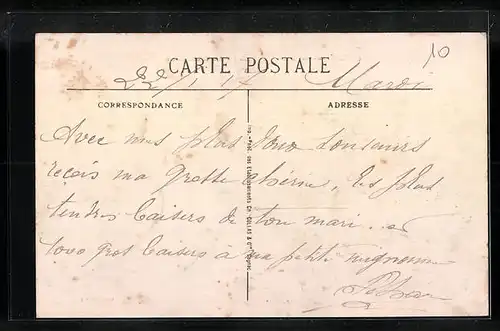 10
CARTE POSTALE
22/1 17 Mardi
CORRESPONDANCE
ADRESSE
Avec mes plus doux souvenirs
reçois ma grosse chérie, les plus
tendres baisers de ton mari
1000 gros baisers à ma petite mignonne